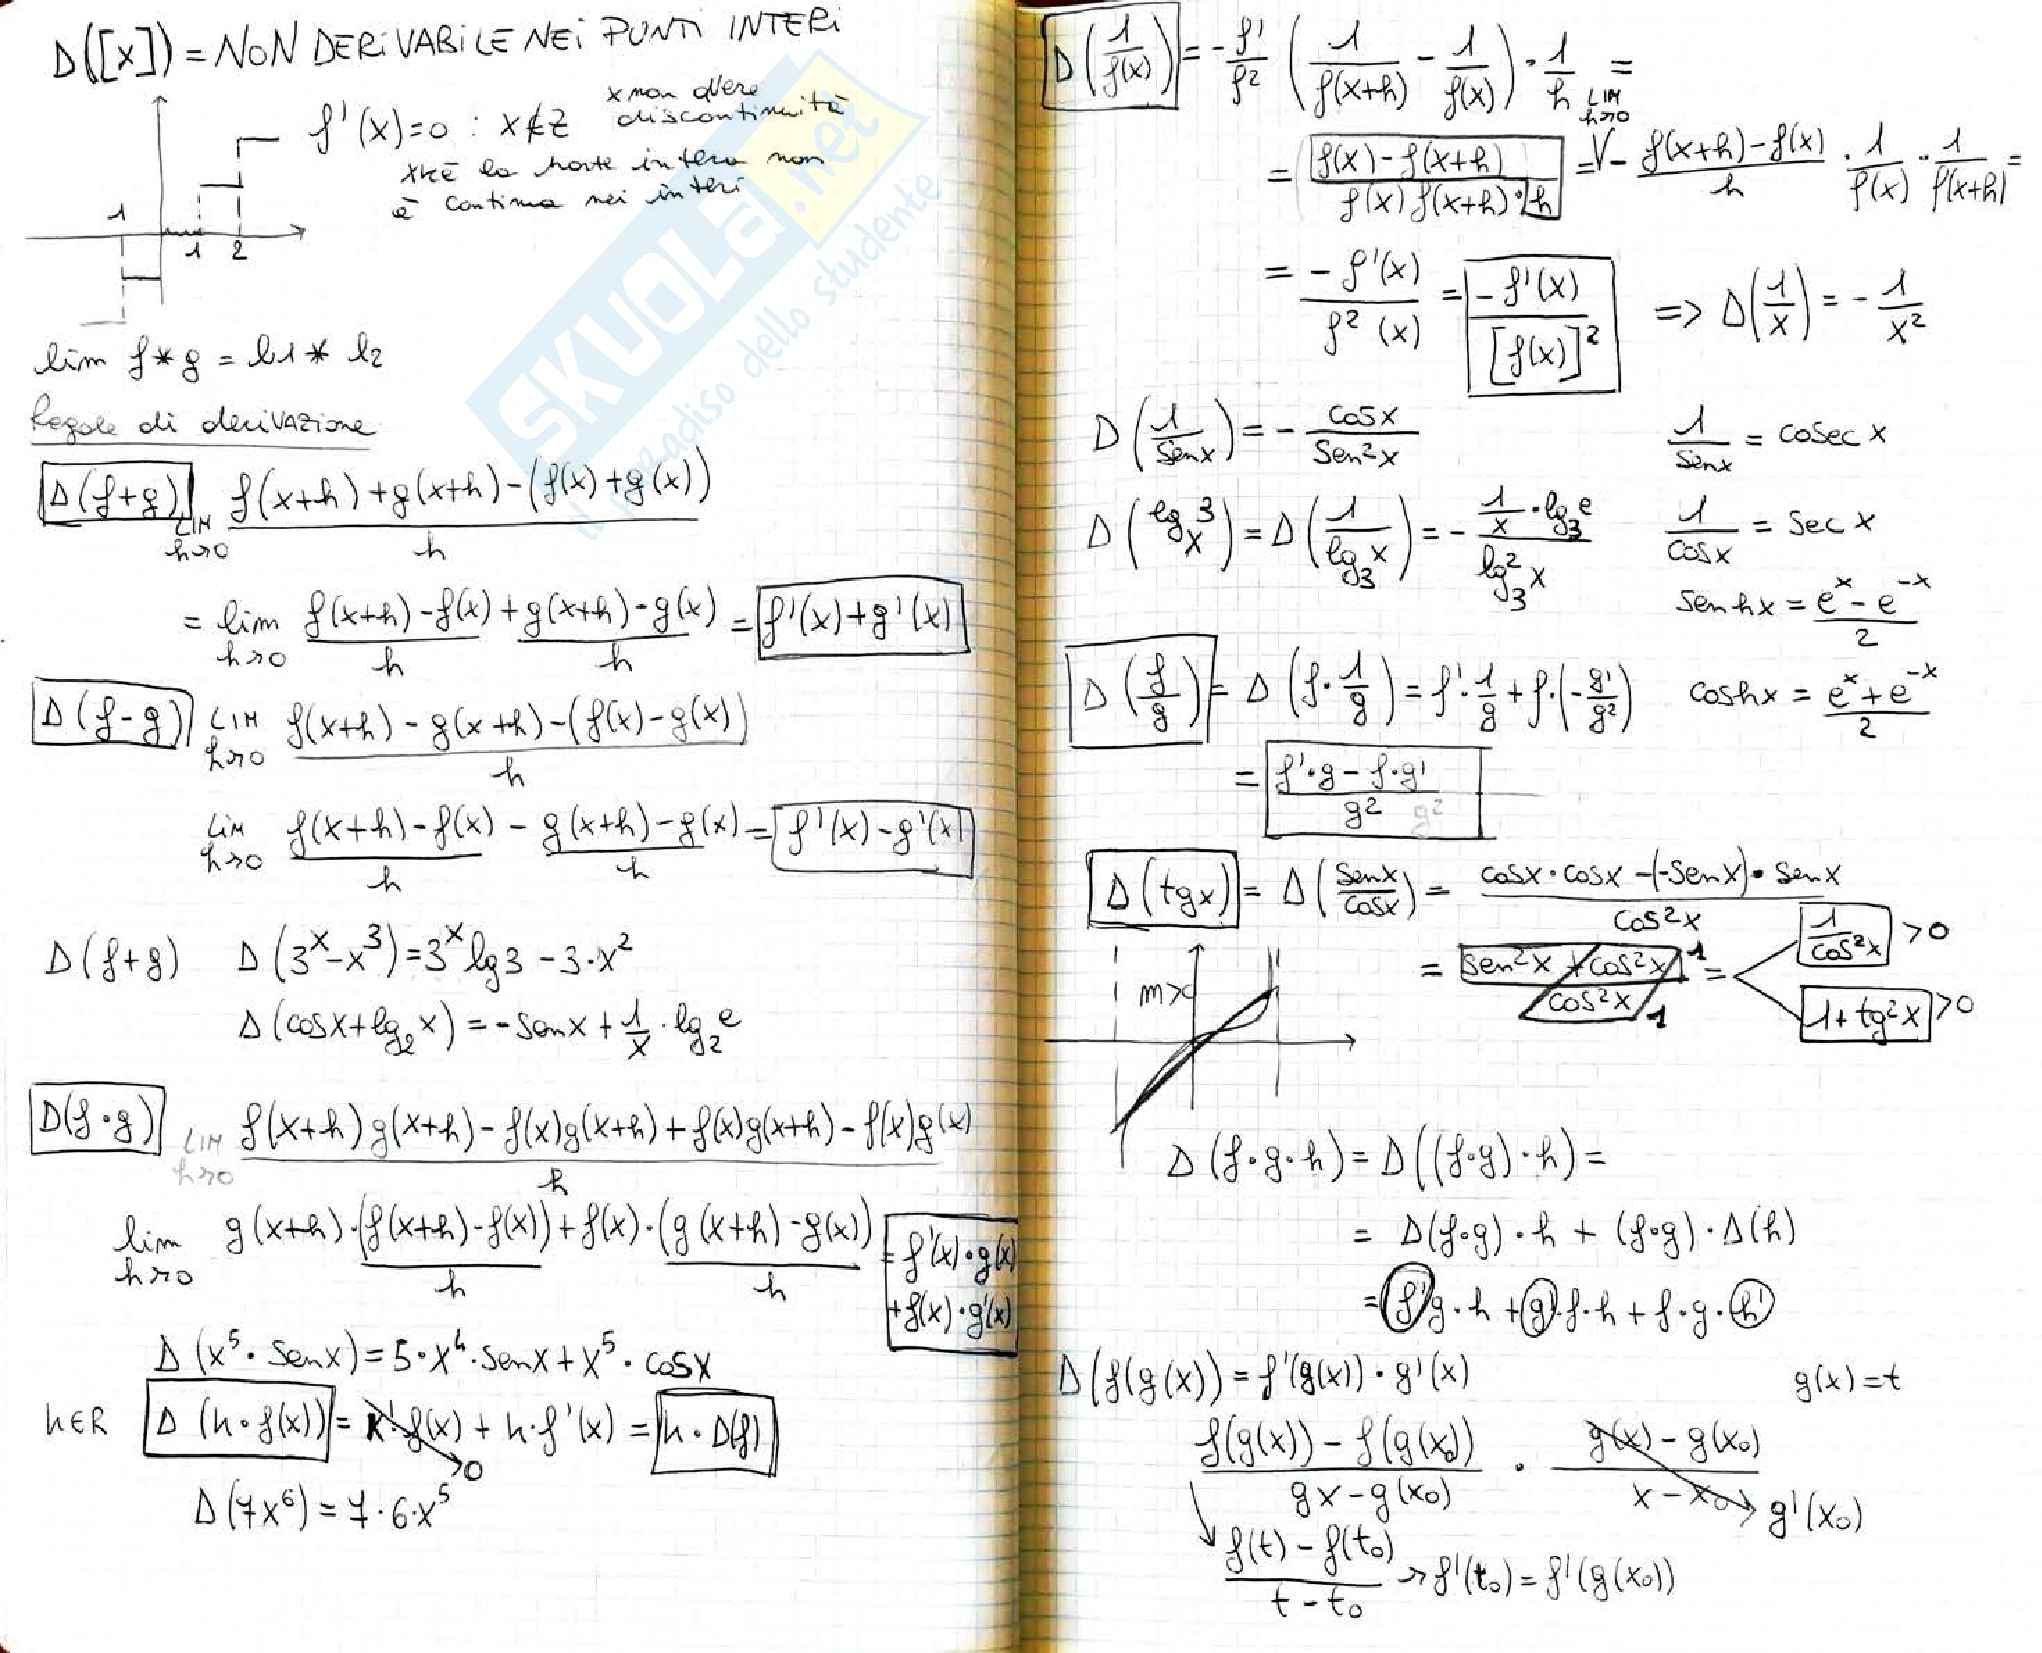 D([x]) = NON DERIVABILE NEI PUNTI INTERI
f'(x)=0 : x∉Z
x non avere
discontinuità
xkè la parte intera non
è continua nei interi
1
1 2
lim f*g = l1 * l2
Regole di derivazione
D(f+g) LIM h→0 (f(x+h)+g(x+h)-(f(x)+g(x)))/h
= lim h→0 (f(x+h)-f(x))/h + (g(x+h)-g(x))/h = f'(x)+g'(x)
D(f-g) LIM h→0 (f(x+h)-g(x+h)-(f(x)-g(x)))/h
LIM h→0 (f(x+h)-f(x))/h - (g(x+h)-g(x))/h = f'(x)-g'(x)
D(f+g) D(3^x-x^3)=3^x lg3-3·x^2
D(cosx+lg_2 x)=-senx+1/x·lg_2 e
D(f·g) LIM h→0 (f(x+h)g(x+h)-f(x)g(x+h)+f(x)g(x+h)-f(x)g(x))/h
lim h→0 g(x+h)·(f(x+h)-f(x))/h + f(x)·(g(x+h)-g(x))/h = f'(x)·g(x)
+f(x)·g'(x)
D(x^5·senx)=5·x^4·senx+x^5·cosx
k∈R D(k·f(x)) = k'·f(x)+k·f'(x) = k·D(f)
0
D(7x^6)=7·6·x^5
D(1/f(x)) = -f'/f^2 (1/f(x+h) - 1/f(x))·1/h =
LIM h→0
= (f(x)-f(x+h))/(f(x)f(x+h)·h) = - (f(x+h)-f(x))/h · 1/f(x) · 1/f(x+h) =
= -f'(x)/f^2(x) = -f'(x)/[f(x)]^2 => D(1/x) = -1/x^2
D(1/senx) = -cosx/sen^2x 1/senx = cosec x
D(lg_x 3) = D(1/lg_3 x) = -(1/x·lg_3 e)/(lg_3^2 x) 1/cosx = sec x
senhx = (e^x-e^-x)/2
D(f/g) = D(f·1/g) = f'·1/g+f·(-g'/g^2) coshx = (e^x+e^-x)/2
= (f'·g-f·g')/g^2 g^2
D(tgx) = D(senx/cosx) = (cosx·cosx-(-senx)·senx)/cos^2x
= (sen^2x+cos^2x)/cos^2x 1 1 = 1/cos^2x >0
1+tg^2x >0
m>0
D(f·g·h)=D((f·g)·h)=
= D(f·g)·h + (f·g)·D(h)
= f'g·h + g'·f·h + f·g·h'
D(f(g(x)) = f'(g(x))·g'(x) g(x)=t
(f(g(x))-f(g(x0)))/(gx-g(x0)) · (g(x)-g(x0))/(x-x0) → g'(x0)
(f(t)-f(t0))/(t-t0) → f'(t0)=f'(g(x0))
SKUOLA.net
il paradiso dello studente